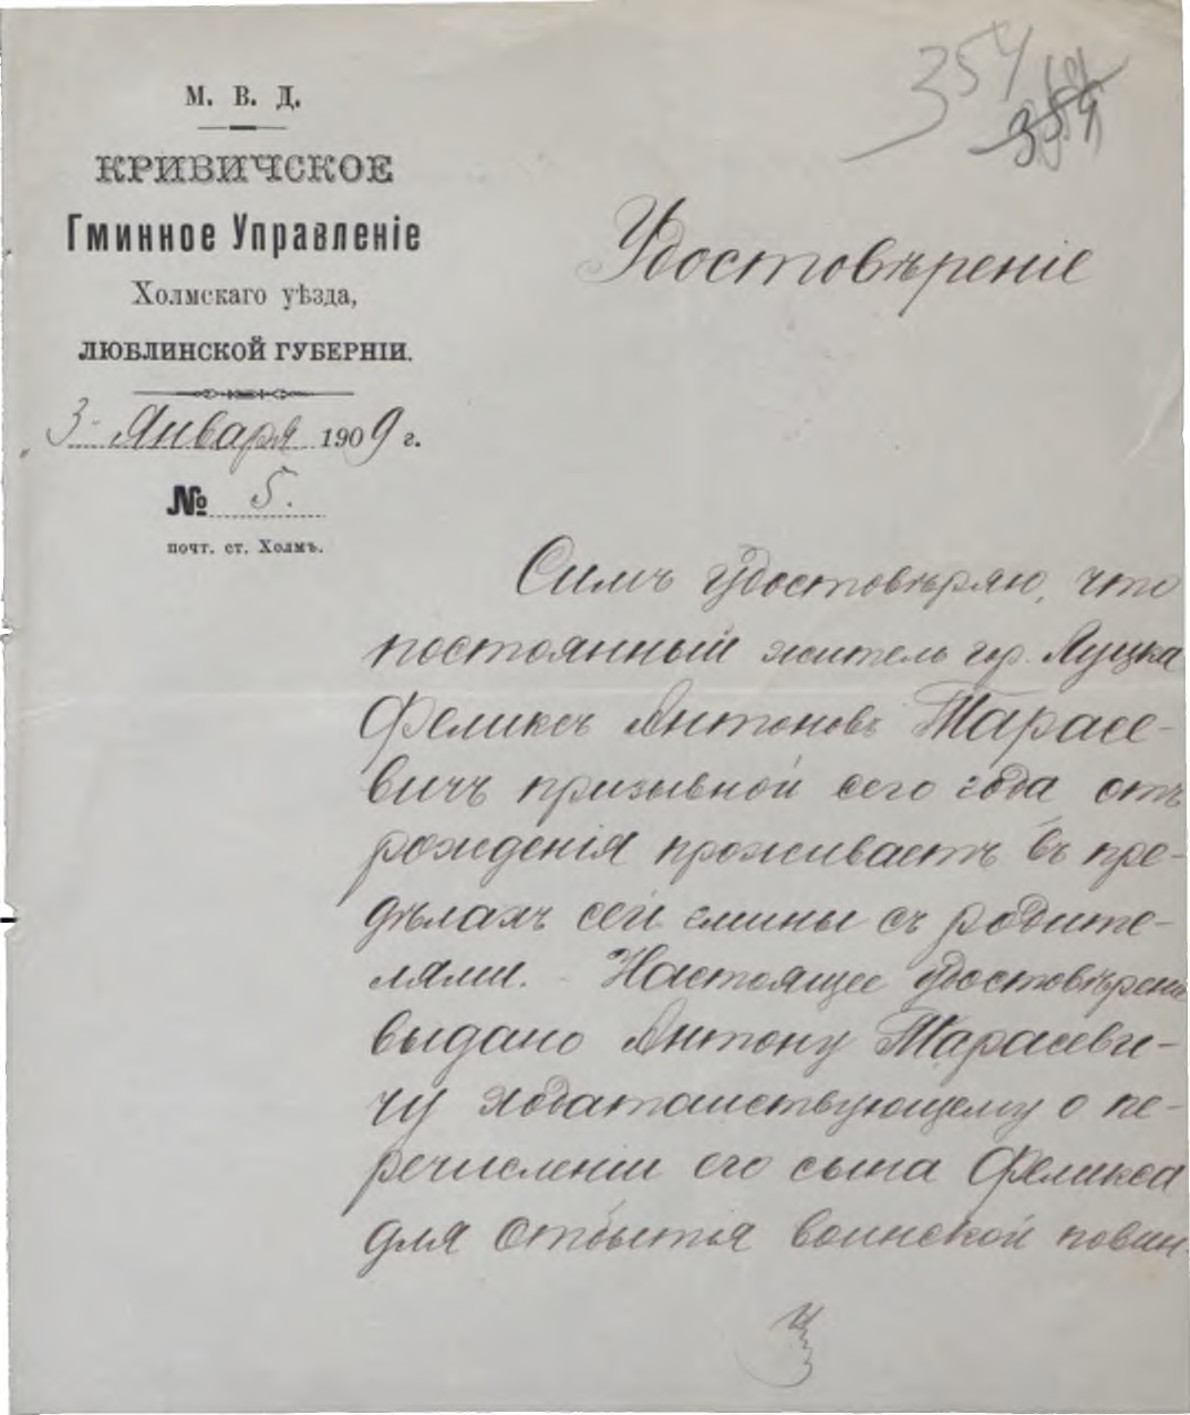 354
354
М. В. Д.
КРИВИЧСКОЕ
Гминное Управленіе
Холмскаго уѣзда,
ЛЮБЛИНСКОЙ ГУБЕРНІИ.
„3 - Января 1909 г.
№ 5.
почт. ст. Холмъ.
Удостовѣреніе
Симъ удостовѣряю, что
постоянный житель гор. Луцка
Феликсъ Антоновъ Тарасе-
вичъ призывной сего года отъ
рожденія проживаетъ въ пре-
дѣлахъ сей гмины съ родите-
лями. - Настоящее удостовѣрені
выдано Антону Тарасеви-
чу ходатайствующему о пе-
речисленіи его сына Феликса
для отбытія воинской повин-